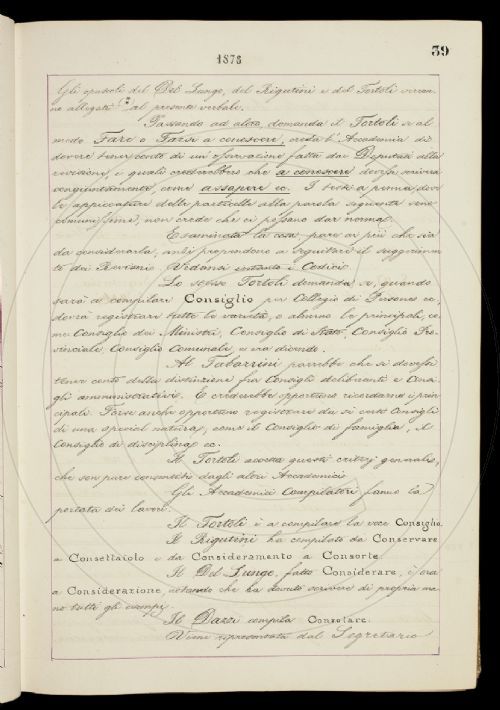 39
1878
Gli opuscoli del Del Lungo, del Rigutini e del Tortoli verran-
no allegati al presente verbale.
Passando ad altro, domanda il Tortoli se al
modo Fare o Farsi a conoscere, creda l'Accademia di
dovere tener conto di un'osservazione fatta dai Deputati alla
revisione, i quali crederebbero che a conoscere dovesse scriversi
congiuntamente, come a sapere ec. I testi a penna, dove
le appiccature delle particelle alla parola seguente sono
comunissime, non crede che ci possano dar norma.
Esaminata la cosa, pare ai più che sia
da considerarla, anzi propendono a seguitare il suggerimen-
to dei Revisori. Vedansi intanto i Codici.
Lo stesso Tortoli domanda, se, quando
sarà a compilare Consiglio per Collegio di Persone ec,
dovrà registrare tutte le varietà, o almeno le principali, co-
me Consiglio dei Ministri, Consiglio di Stato, Consiglio Pro-
vinciale, Consiglio Comunale, e via dicendo.
Al Tabarrini parrebbe che si dovesse
tener conto della distinzione fra Consigli deliberanti e Consi-
gli amministrativi. E crederebbe opportuno ricordarne i prin-
cipali. Forse anche opportuno registrare da sè certi Consigli
di una special natura, come il Consiglio di famiglia, il
Consiglio di disciplina ec.
Il Tortoli accetta questi criterj generali,
che son pure consentiti dagli altri Accademici.
Gli Accademici Compilatori fanno la
portata dei lavori.
Il Tortoli è a compilare la voce Consiglio.
Il Rigutini ha compilato da Conservare
a Consettaiolo e da Consideramento a Consorte.
Il Del Lungo, fatto Considerare, è ora
a Considerazione, notando che ha dovuto scrivere di propria ma-
no tutti gli esempj.
Il Dazzi compila Consolare.
Viene ripresentata dal Segretario